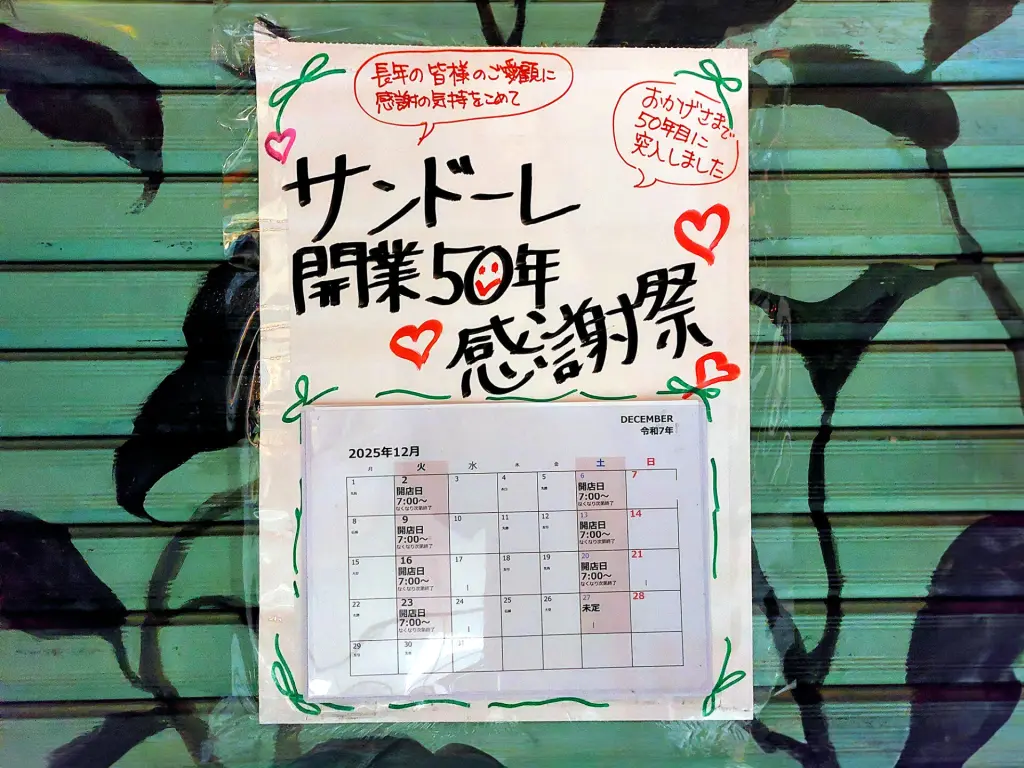 長年の皆様のご愛顧に
感謝の気持をこめて
おかげさまで
50年目に
突入しました
サンドーレ
開業50年
感謝祭
DECEMBER
令和7年
2025年12月
月 火 水 木 金 土 日
1 2 3 4 5 6 7
開店日 開店日
7:00~ 7:00~
なくなり次第終了 なくなり次第終了
8 9 10 11 12 13 14
開店日 開店日
7:00~ 7:00~
なくなり次第終了 なくなり次第終了
15 16 17 18 19 20 21
開店日 開店日
7:00~ 7:00~
なくなり次第終了 なくなり次第終了
22 23 24 25 26 27 28
開店日 未定
7:00~
なくなり次第終了
29 30 31